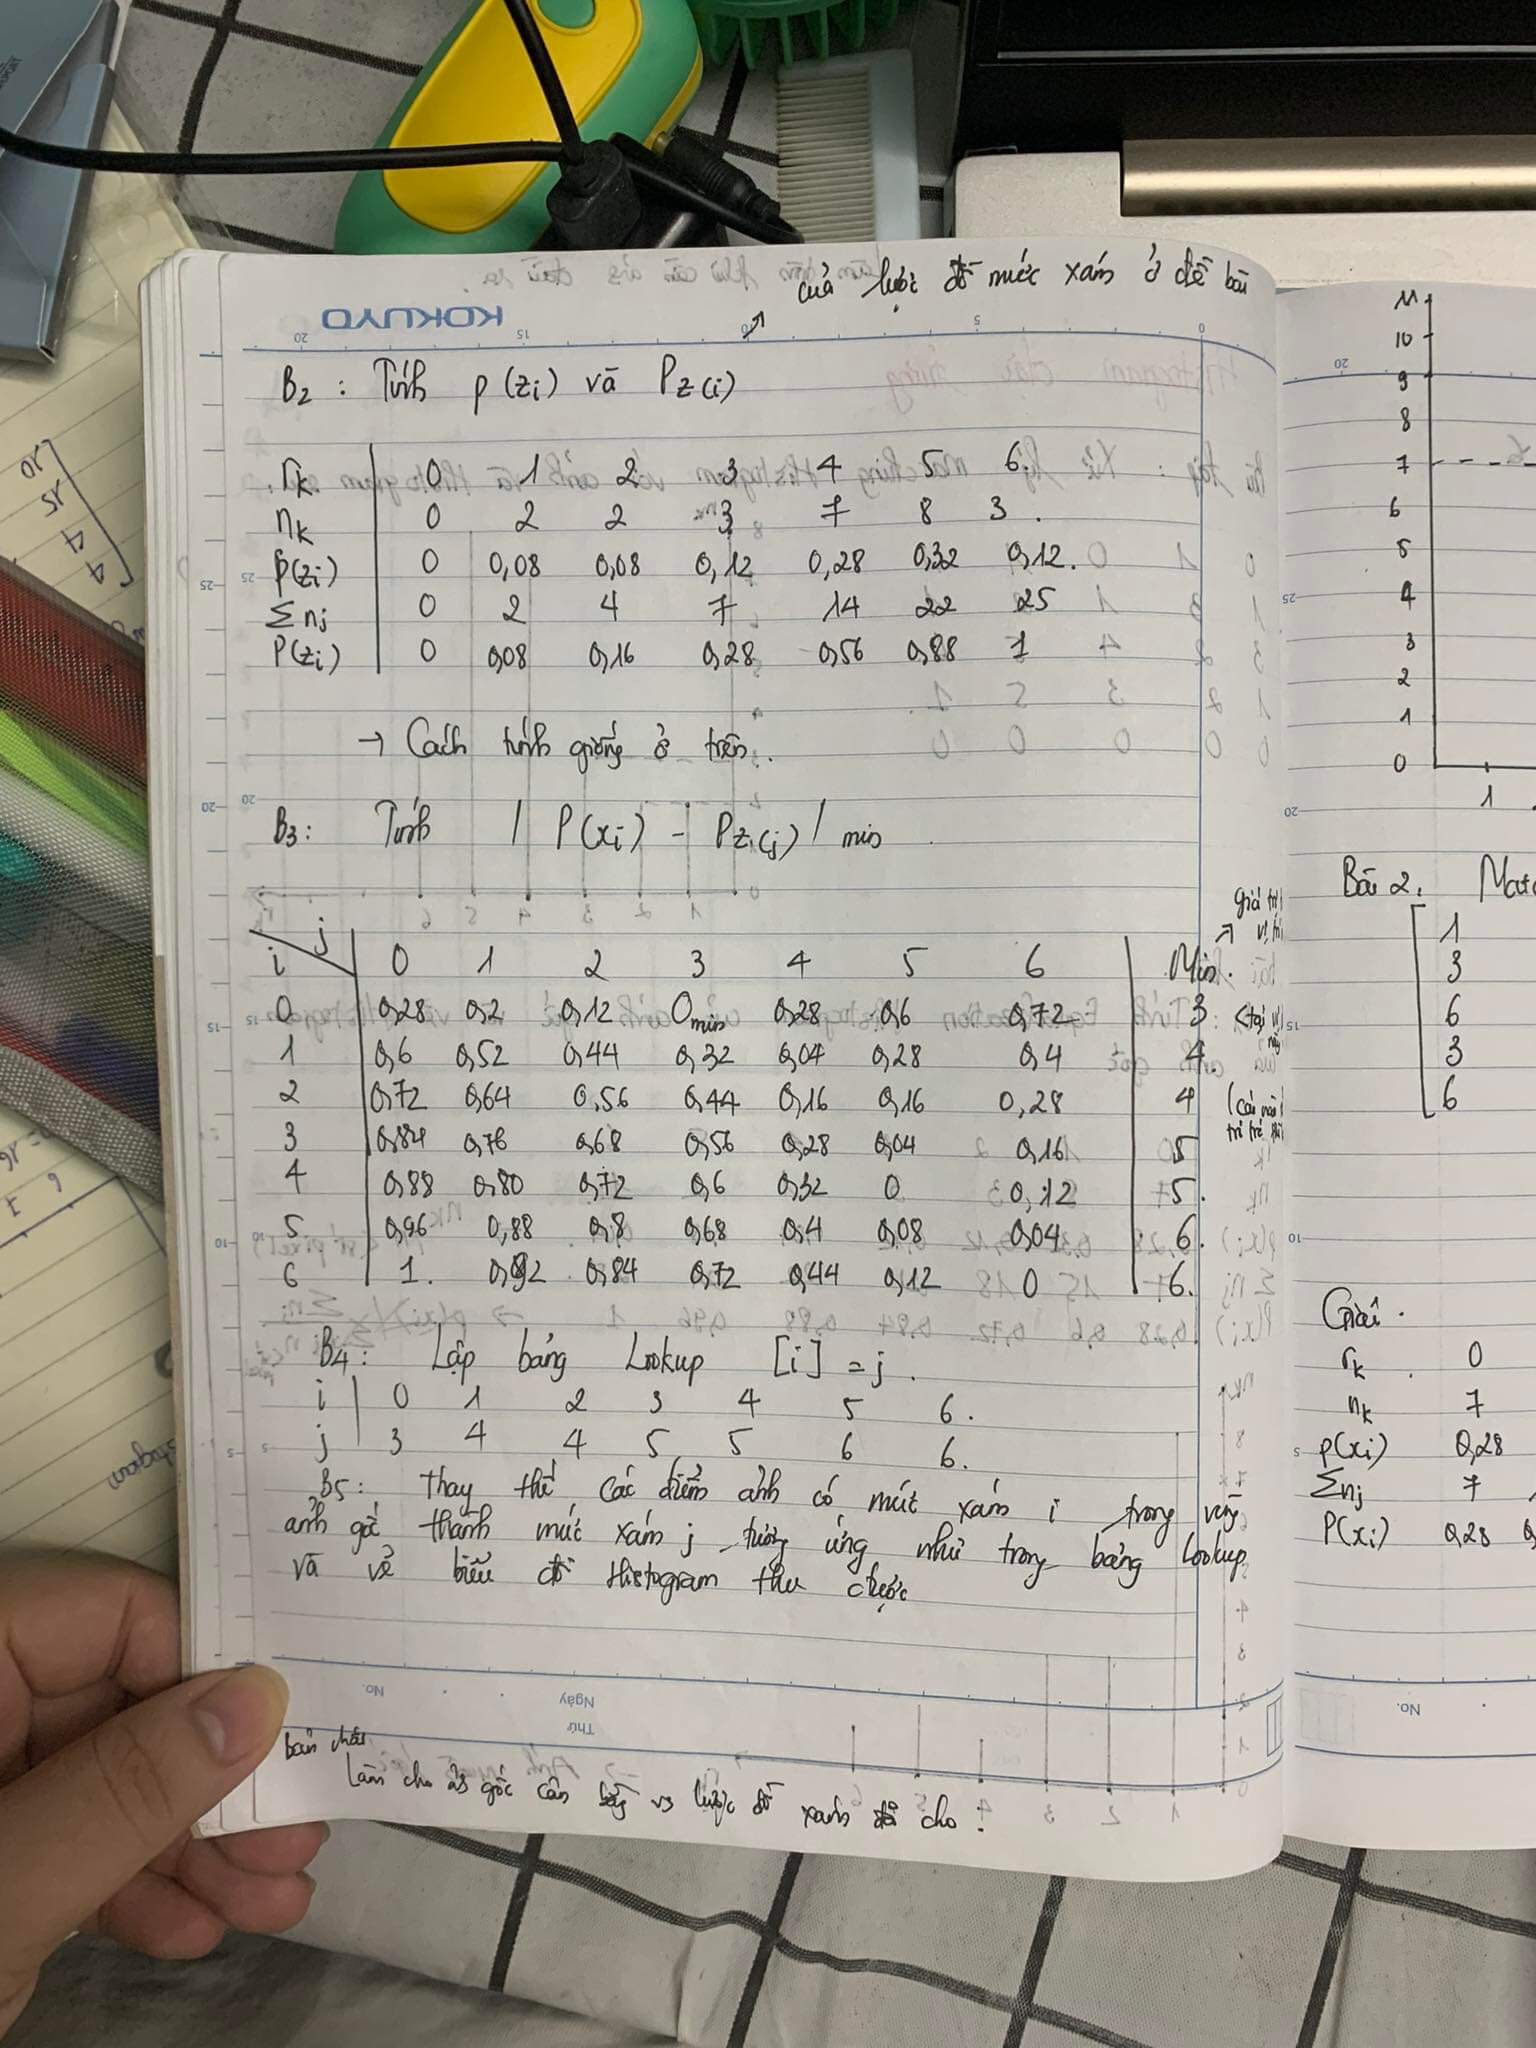 của lược đồ mức xám ở đề bài
KOKUYO
B2 : Tính p(zi) và Pz(i)
rk 0 1 2 3 4 5 6.
nk 0 2 2 3 7 8 3.
P(zi) 0 0,08 0,08 0,12 0,28 0,32 0,12.
Σnj 0 2 4 7 14 22 25
P(zi) 0 0,08 0,16 0,28 0,56 0,88 1
→ Cách tính giống ở trên.
B3: Tính | P(xi) - Pz(j) | min
i j 0 1 2 3 4 5 6 Min.
0 0,28 0,2 0,12 0min 0,28 0,6 0,72 3
1 0,6 0,52 0,44 0,32 0,04 0,28 0,4 4
2 0,72 0,64 0,56 0,44 0,16 0,16 0,28 4
3 0,84 0,76 0,68 0,56 0,28 0,04 0,16 5
4 0,88 0,80 0,72 0,6 0,32 0 0,12 5.
5 0,96 0,88 0,8 0,68 0,4 0,08 0,04 6.
6 1. 0,92 0,84 0,72 0,44 0,12 0 6.
B4: Lập bảng Lookup [i] = j.
i 0 1 2 3 4 5 6.
j 3 4 4 5 5 6 6.
B5: thay thế các điểm ảnh có mức xám i trong
ảnh gốc thành mức xám j tương ứng như trong bảng Lookup
và vẽ biểu đồ Histogram thu được
No. Ngày
Thứ
bản chất
Làm cho ảnh gốc cân bằng vs lược đồ xám đã cho
11
10
9
8
7
6
5
4
3
2
1
0
1
Bài 2.
1
3
6
3
6
Giải.
rk 0
nk 7
p(xi) 0,28
Σnj 7
P(xi) 0,28
No.